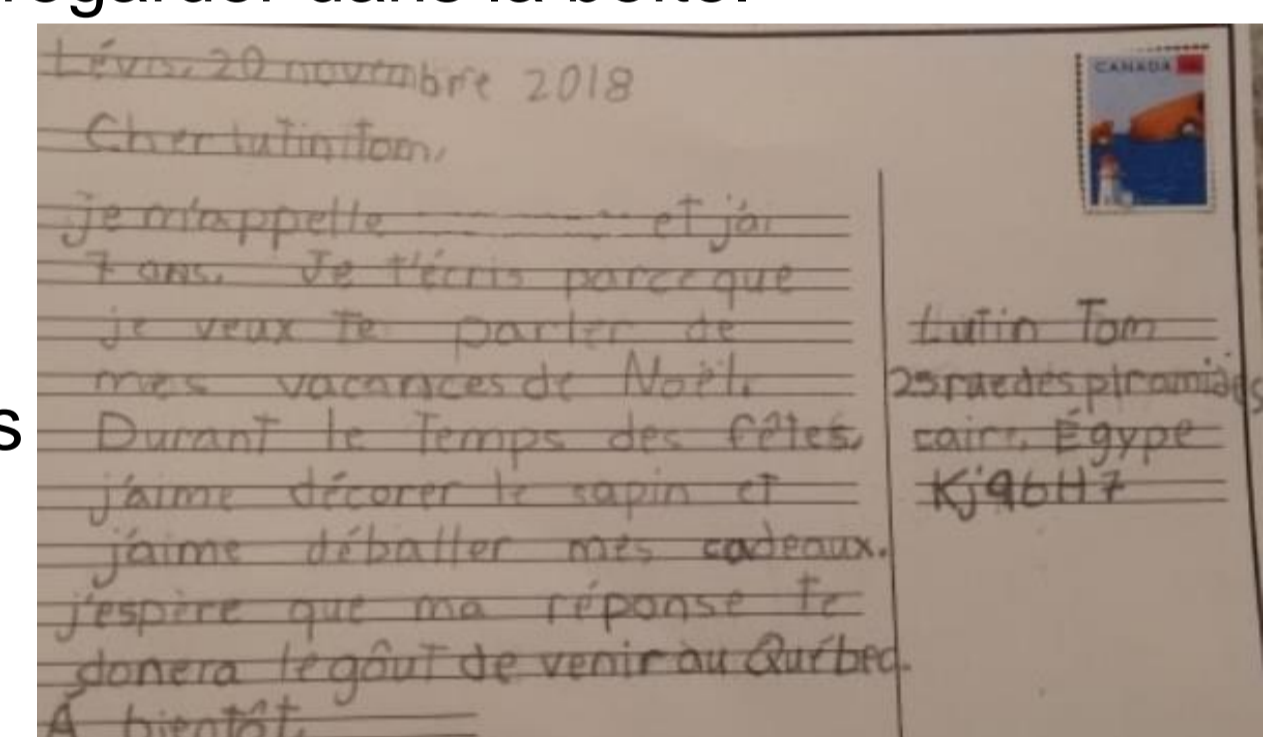 regarder dans la boîte.
Lévis, 20 novembre 2018
Cher lutin Tom,
CANADA
je m'appelle et j'ai
7 ans. Je t'écris parce que
je veux te parler de
mes vacances de Noël.
Durant le temps des fêtes,
j'aime décorer le sapin et
j'aime déballer mes cadeaux.
j'espère que ma réponse te
donera le goût de venir au Québec.
À bientôt,
Lutin Tom
25 rue des piramides
caire, Égype
Kj96H7
s